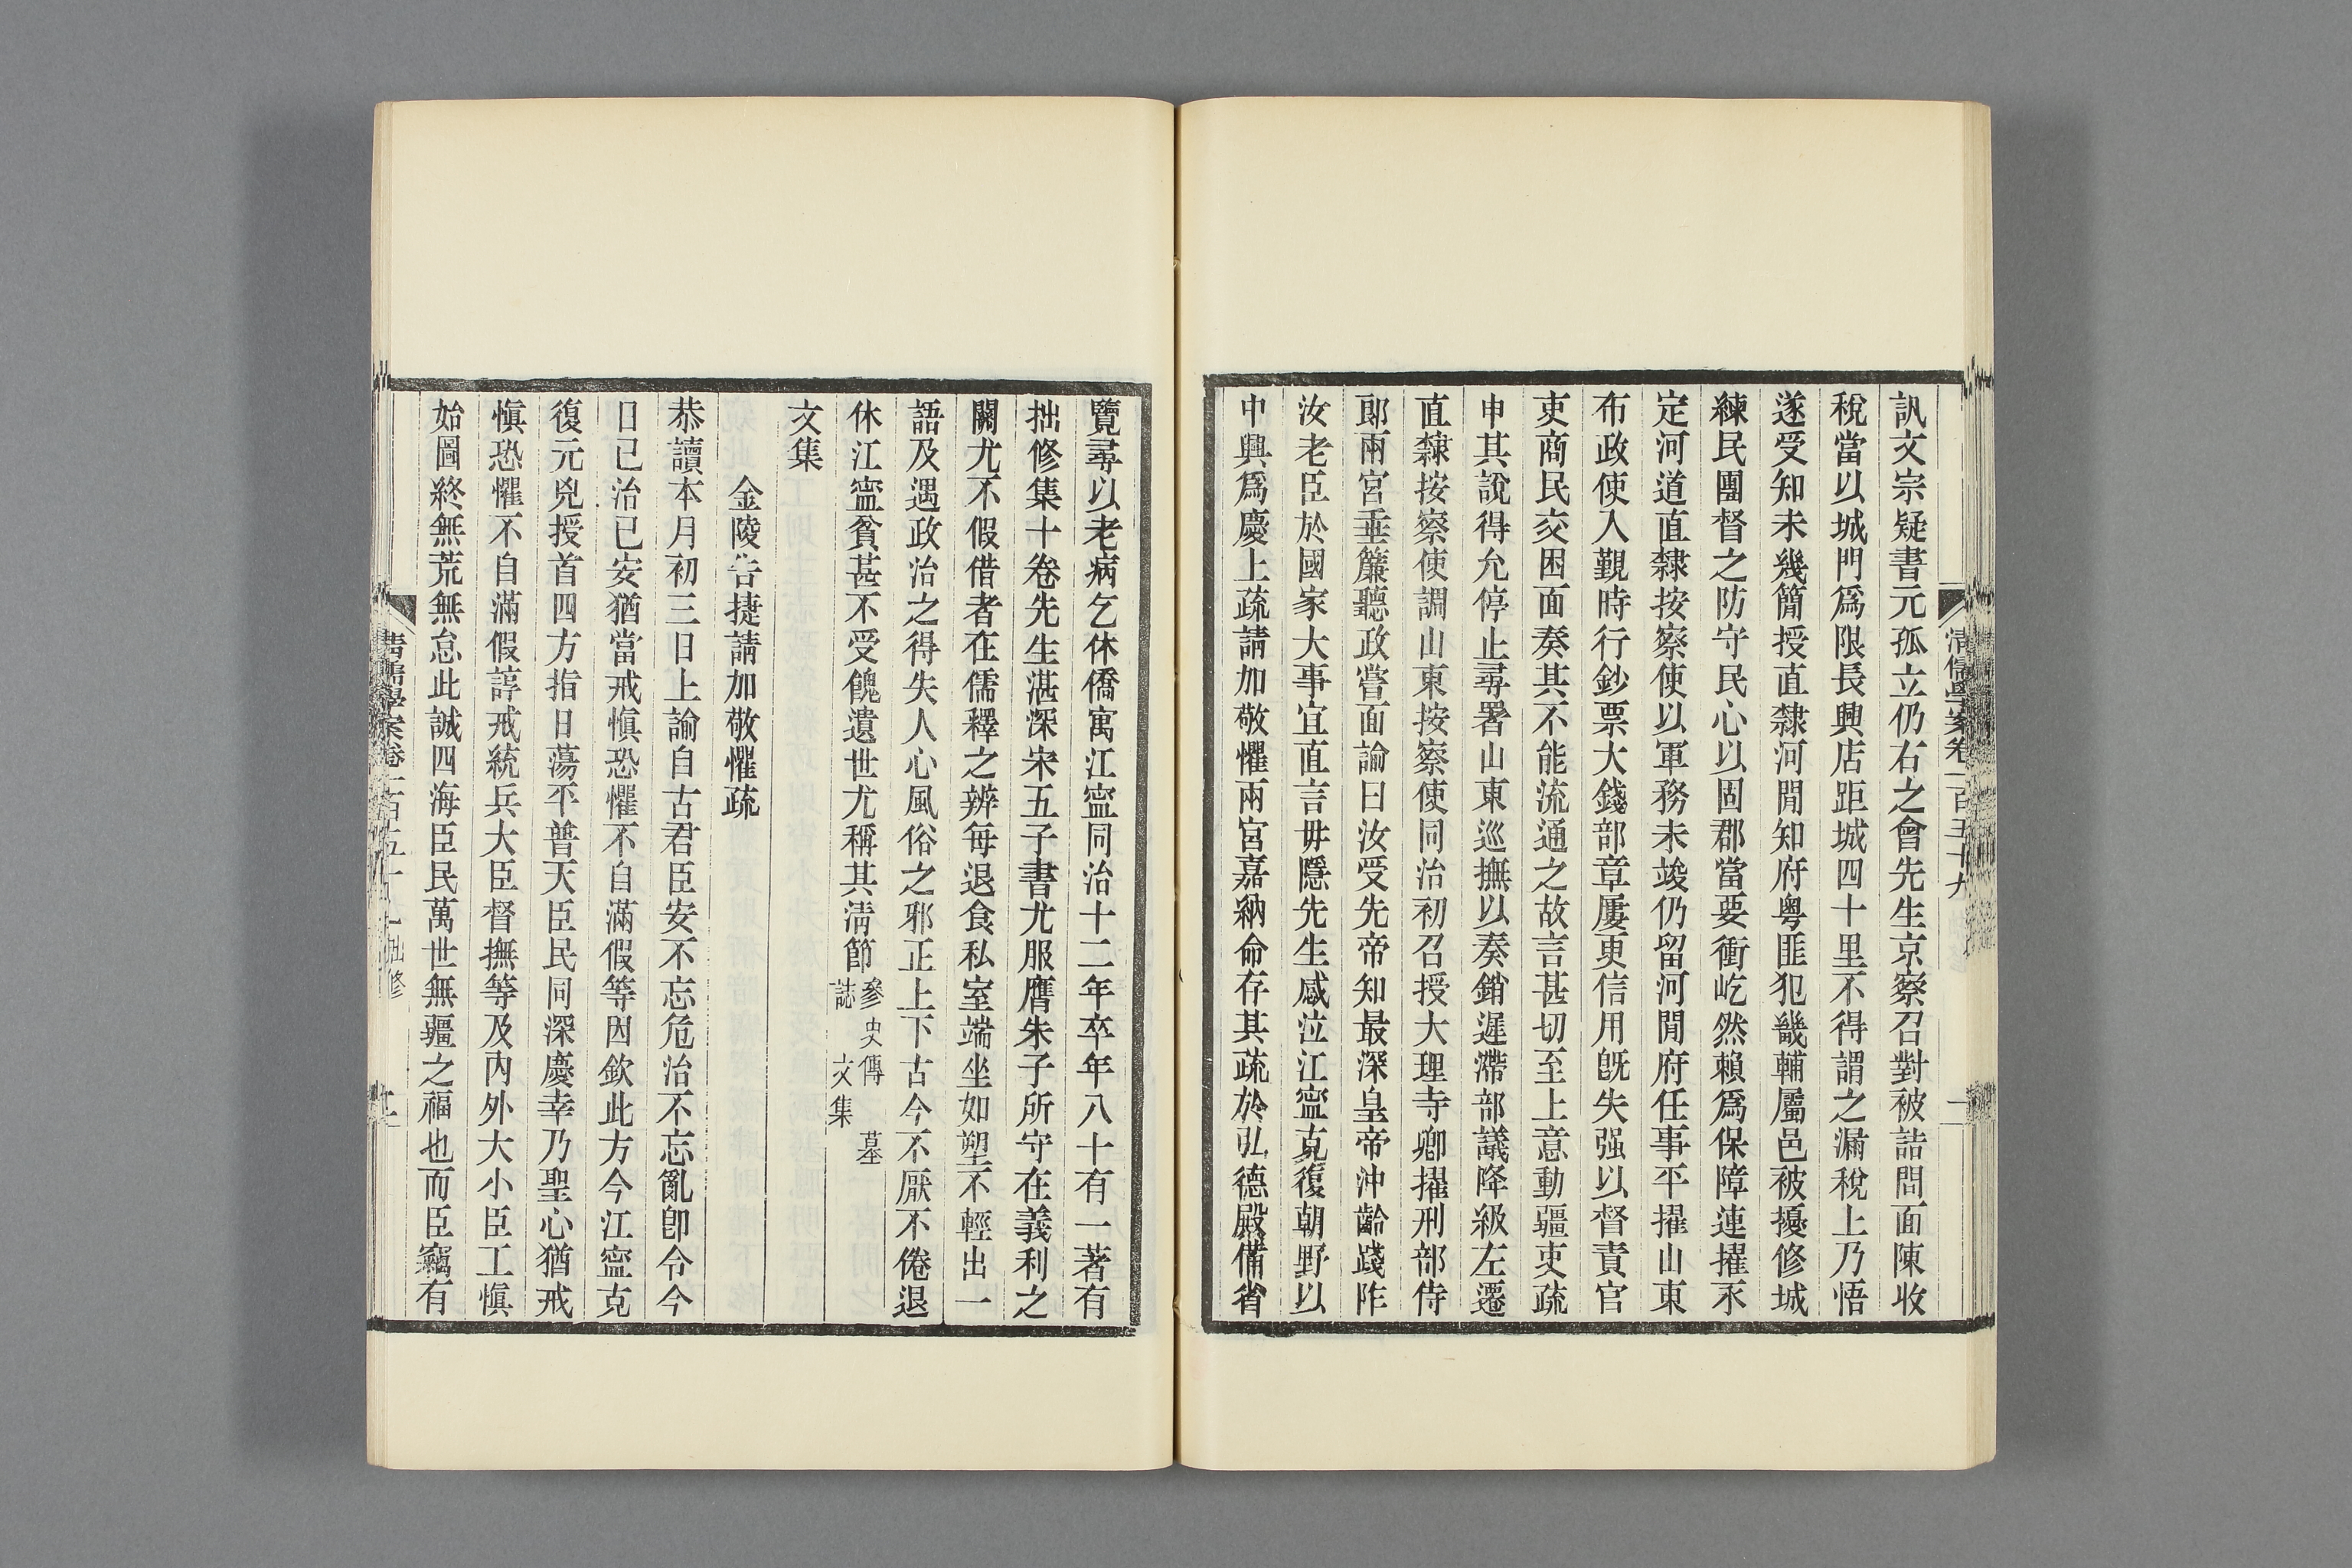 清儒學案卷一百五十九
一
訊文宗疑書元孤立仍右之會先生京察召對被詰問面陳收
稅當以城門爲限長興店距城四十里不得謂之漏稅上乃悟
遂受知未幾簡授直隸河閒知府粵匪犯畿輔屬邑被擾修城
練民團督之防守民心以固郡當要衝屹然賴爲保障連擢永
定河道直隸按察使以軍務未竣仍留河閒府任事平擢山東
布政使入覲時行鈔票大錢部章屢更信用旣失强以督責官
吏商民交困面奏其不能流通之故言甚切至上意動疆吏疏
申其說得允停止尋署山東巡撫以奏銷遲滯部議降級左遷
直隸按察使調山東按察使同治初召授大理寺卿擢刑部侍
郞兩宮垂簾聽政嘗面諭曰汝受先帝知最深皇帝沖齡踐阼
汝老臣於國家大事宜直言毋隱先生感泣江寍克復朝野以
中興爲慶上疏請加敬懼兩宮嘉納命存其疏於弘德殿備省
覽尋以老病乞休僑寓江寍同治十二年卒年八十有一著有
拙修集十卷先生湛深宋五子書尤服膺朱子所守在義利之
關尤不假借者在儒釋之辨每退食私室端坐如塑不輕出一
語及遇政治之得失人心風俗之邪正上下古今不厭不倦退
休江寍貧甚不受餽遺世尤稱其淸節參史傳 墓
誌 文集
文集
金陵告捷請加敬懼疏
恭讀本月初三日上諭自古君臣安不忘危治不忘亂卽令今
日已治已安猶當戒愼恐懼不自滿假等因欽此方今江寍克
復元兇授首四方指日蕩平普天臣民同深慶幸乃聖心猶戒
愼恐懼不自滿假諄戒統兵大臣督撫等及內外大小臣工愼
始圖終無荒無怠此誠四海臣民萬世無疆之福也而臣竊有
清儒學案卷一百五十九 拙修